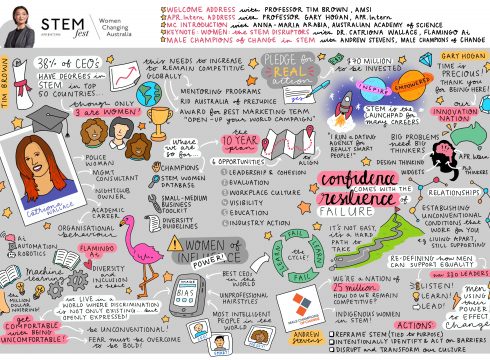 STEM
fest
Women
Changing
Australia
WELCOME ADDRESS with PROFESSOR TIM BROWN, AMSI
APR.Intern ADDRESS with PROFESSOR GARY HOGAN, APR.Intern
MC INTRODUCTION with ANNA-MARIA ARABIA, AUSTRALIAN ACADEMY of SCIENCE
KEYNOTE: WOMEN the STEM DISRUPTORS with DR. CATRIONA WALLACE, FLAMINGO Ai
MALE CHAMPIONS OF CHANGE in STEM with ANDREW STEVENS, MALE CHAMPIONS OF CHANGE
TIM BROWN
38% of CEO's
HAVE DEGREES in
STEM in TOP
50 COUNTRIES...
though ONLY
3 are WOMEN!
this NEEDS to INCREASE
to REMAIN COMPETITIVE
GLOBALLY
MENTORING PROGRAMS
RID AUSTRALIA of PREJUDICE
AWARD for BEST MARKETING TEAM
"OPEN-UP YOUR WORLD CAMPAIGN"
PLEDGE for
REAL
action
yes
$70 MILLION
to BE INVESTED
INSPIRE
EMPOWERED
STEM is the
LAUNCHPAD for
MANY CAREERS
GARY HOGAN
TIME is
PRECIOUS
THANK you
for BEING HERE!
our
INNOVATION
NATION
"I RUN a DATING
AGENCY for
REALLY SMART
PEOPLE!"
BIG PROBLEMS
need BIG
THINKERS
DESIGN THINKING
WIDGETS
APR.Intern
THINKERS
Catriona
WALLACE
POLICE
WOMAN
MGMT.
CONSULTANT
NIGHTCLUB
OWNER
ACADEMIC
CAREER
ORGANISATIONAL
behaviour
where
we are
so far...
CHAMPIONS
STEM WOMEN
DATABASE
SMALL-MEDIUM
BUSINESS
TOOLKIT
DIVERSITY
GUIDELINES
the
10 YEAR
plan
ALIGN
6 OPPORTUNITIES
1 LEADERSHIP & COHESION
2 EVALUATION
3 WORKPLACE CULTURE
4 VISIBILITY
5 EDUCATION
6 INDUSTRY ACTION
confidence
COMES WITH THE
resilience
of
FAILURE
IT'S NOT EASY,
it's A HARD
PATH to
TAKE
RELATIONSHIPS
ESTABLISHING
UNCONVENTIONAL
CONDITIONS that
WORK for YOU
eg LIVING APART,
STILL SUPPORTING
RE-DEFINING how MEN
CAN SUPPORT EQUALITY
Ai
AUTOMATION
ROBOTICS
Machine
Learning
the
MILLION
DOLLAR
FLAMINGO
Ai
DIVERSITY
and
INCLUSION
at the
WE LIVE IN A
WORLD WHERE DISCRIMINATION
IS NOT ONLY EXISTING... BUT
OPENLY EXPRESSED!
get
COMFORTABLE
with BEING
UNCOMFORTABLE!
BE UNCONVENTIONAL!
FEAR must be OVERCOME
to BE BOLD!
BIAS
SMART
WOMEN of
INFLUENCE
POWER!
BEST CEO's in the
WORLD
UNPROFESSIONAL
HAIRSTYLES
MOST INTELLIGENT
PEOPLE in the
WORLD
the
CYCLE!
LEARN
FAIL
LEARN
FAIL
WE'RE a NATION of
25 million
HOW DO WE REMAIN
COMPETITIVE?
INDIGENOUS WOMEN
in STEM!
over 220 LEADERS
LISTEN!
LEARN!
LEAD!
MEN
using
THEIR
POWER
to EFFECT
Change
ANDREW
Stevens
ACTIONS:
REFRAME STEM (TIE to PURPOSE)
INTENTIONALLY IDENTIFY & ACT on BARRIERS
DISRUPT and TRANSFORM our CULTURE